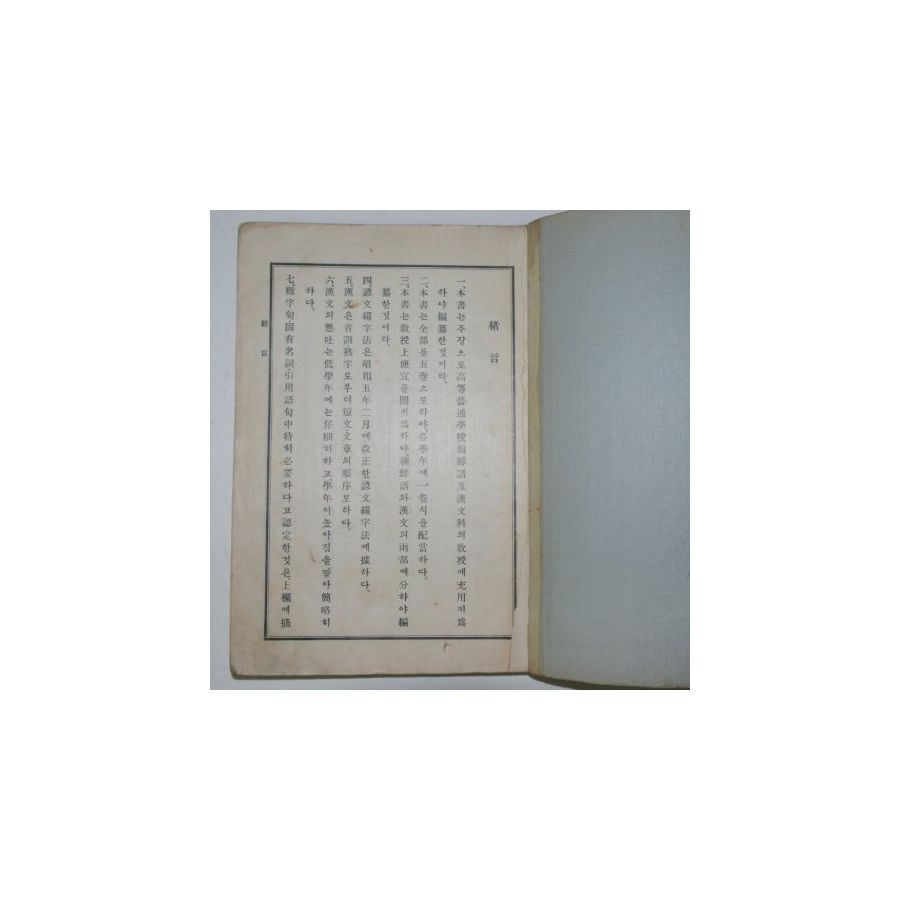 緖言
一、本書는주장으로高等普通學校朝鮮語及漢文科의敎授에充用키爲
하야編纂한것이라。
二、本書는全部를五卷으로하야、各學年에一卷식을配當하다。
三、本書는敎授上便宜를圖키爲하야、朝鮮語와漢文의兩部에分하야編
纂한것이라。
四、諺文綴字法은昭和五年二月에改正한諺文綴字法에據하다。
五、漢文은音訓熟字로부터短文文章의順序로하다。
六、漢文의懸吐는低學年에는仔細히하고、學年이높아짐을딸아簡略히
하다。
七、難字句、固有名詞、引用語句中特히必要하다고認定한것은、上欄에摘
緖言